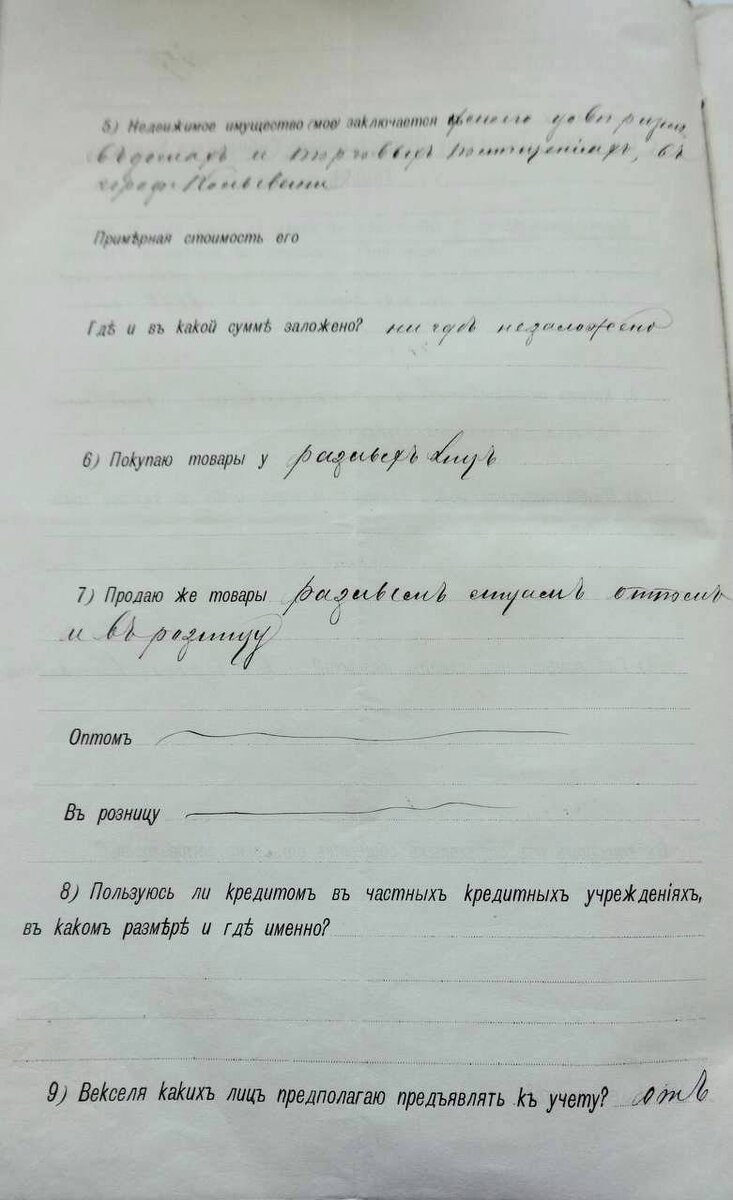 5) Недвижимое имущество (мое) заключается
въ домахъ и торговыхъ помещенiяхъ, въ
городе
Примѣрная стоимость его
Гдѣ и въ какой суммѣ заложено? ни гдѣ незаложено
6) Покупаю товары у разныхъ лицъ
7) Продаю же товары разнымъ лицамъ оптомъ
и въ розницу
Оптомъ
Въ розницу
8) Пользуюсь ли кредитомъ въ частныхъ кредитныхъ учрежденiяхъ,
въ какомъ размѣрѣ и гдѣ именно?
9) Векселя какихъ лицъ предполагаю предъявлять къ учету? отъ